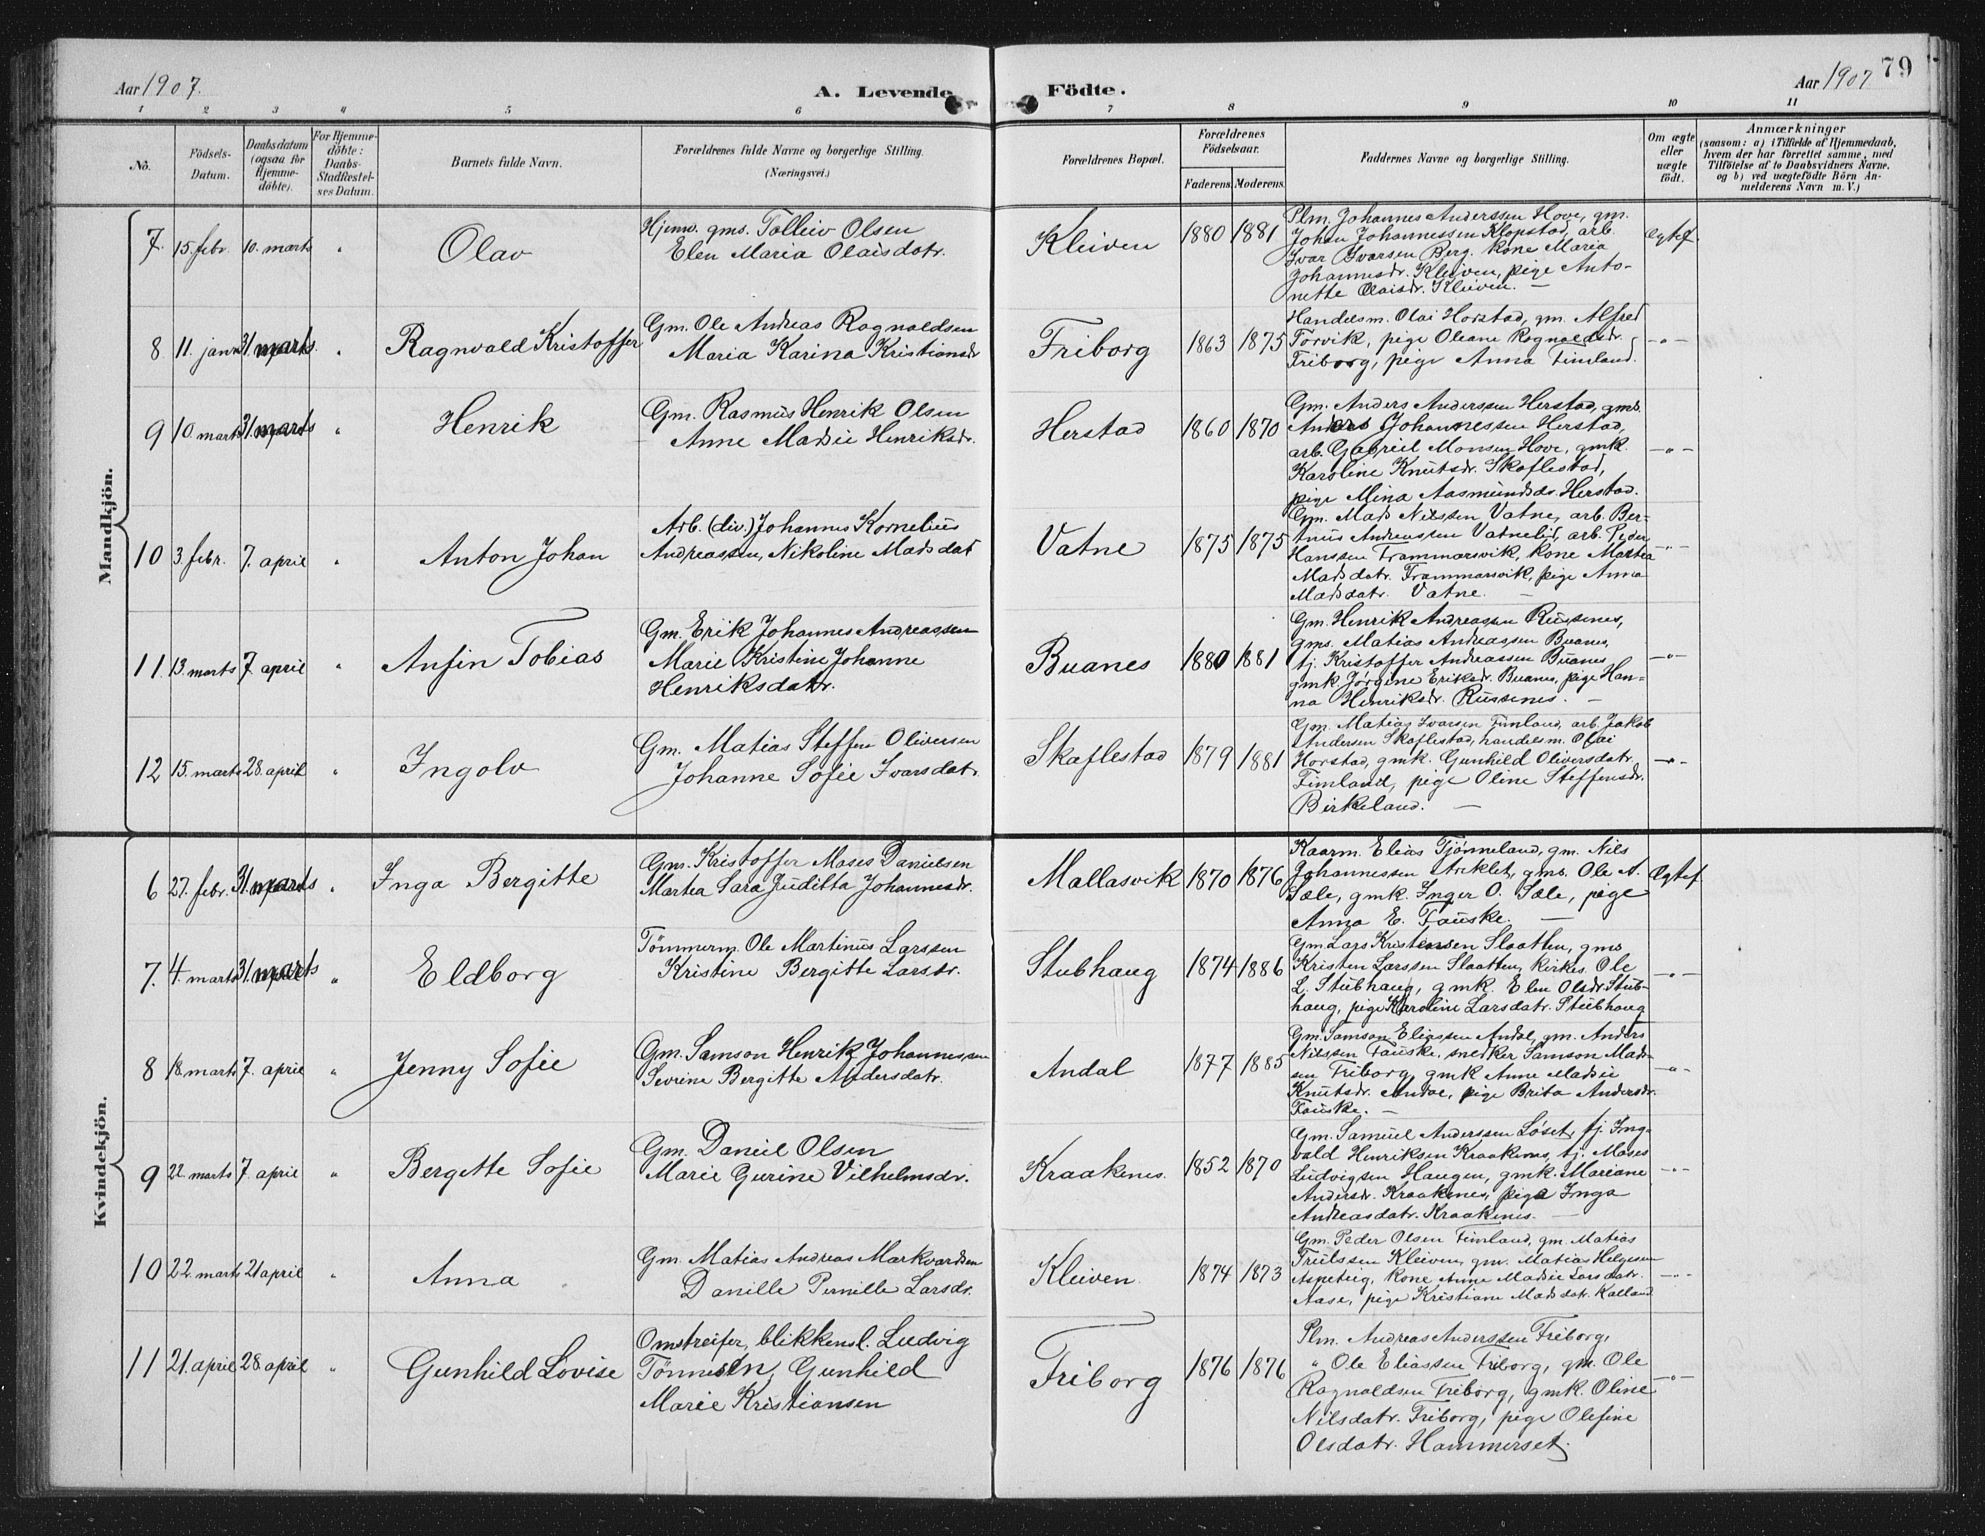 Aar 1907.
A. Levende Födte.
Aar 1907
79
1 2 3 4 5 6 7 8 9 10 11
No.
Födsels-
Datum.
Daabsdatum
(ogsaa for
Hjemme-
döbte).
For Hjemme-
döbte:
Daabs-
Stadfæstel-
ses Datum.
Barnets fulde Navn.
Forældrenes fulde Navne og borgerlige Stilling.
(Næringsvei.)
Forældrenes Bopæl.
Forældrenes
Födselsaar.
Faderens. Moderens.
Faddernes Navne og borgerlige Stilling.
Om ægte
eller
uægte
födt.
Anmærkninger
(saasom: a) i Tilfælde af Hjemmedaab,
hvem der har forrettet samme, med
Tilföielse af to Daabsvidners Navne.
og b) ved uægtefödte Börn An-
melderens Navn m. V.)
Mandkjön.
7. 15. febr. 10. marts " Olav
Hjemv. gms. Tolleiv Olsen
Elen Maria Olaisdatr.
Kleiven 1880 1881
Plm. Johannes Anderssen Hove, gm.
Johan Johannessen Klopstad, arb.
Ivar Ivarsen Berg, kone Maria
Johannesdr. Kleiven, pige Anto-
nette Olaisdr. Kleiven. —
Ægtef.
8 11. janr 31 marts. " Ragnvald Kristoffer
Gm. Ole Andreas Ragnvaldsen
Maria Karina Kristiansdr
Friborg 1863 1875
Handelsm. Olai Horstad, gm. Alfred
Torvik, pige Oleane Ragnvaldsdr.
Friborg, pige Anna Timland.
—"—
9 10. marts 31. marts " Henrik
Gm. Rasmus Henrik Olsen
Anne Madsie Henriksdr.
Herstad 1860 1870
Gm. Anders Anderssen Herstad, gms.
Anders Johannessen Herstad,
arb. Gabriel Monsen Hove, gmk.
Karoline Knutsdr. Skaflestad,
pige Mina Aasmundsdr. Herstad.
—"—
10 3. febr. 7. april " Anton Johan
Arb. (div.) Johannes Kornelius
Andreassen, Nikoline Madsdat
Vatne 1875 1875
Gm. Mads Nilssen Vatne, arb. Ber-
tinus Andreassen Vatnelid, arb. Peder
Hanssen Trammarsvik, kone Martea
Madsdatr. Trammarsvik, pige Anna
Madsdatr. Vatne. —
—"—
11. 13. marts 7 april " Anfin Tobias
Gm. Erik Johannes Andreassen
Marie Kristine Johanne
Henriksdatr.
Buanes 1880 1881
Gm. Henrik Andreassen Russenes,
gms. Matias Andreassen Buanes,
tj. Kristoffer Andreassen Buanes
gmk. Jørgine Eriksdr. Buanes, pige Han-
na Henriksdr. Russenes. —
—"—
12 15. marts 28. april " Ingolv
Gm. Matias Steffen Oliversen
Johanne Sofie Ivarsdatr.
Skaflestad 1879 1881
Gm. Matias Ivarsen Timland, arb. Jakob
Andersen Skaflestad, handelsm. Olai
Horstad, gmk. Gunhild Oliversdatr.
Timland, pige Oline Steffensdr.
Birkeland. —
—"—
Kvindekjön.
6 27. febr. 31. marts " Inga Bergitte
Gm. Kristoffer Moses Danielsen
Martea Sara Juditta Johannesdr.
Mallasvik 1870 1876
Kaarm. Elias Tjønneland, gm. Nils
Johannessen Areklet, gms. Ole A.
Sæle, gmk. Inger O. Sæle, pige
Anna E. Fauske. —
Ægtef
7. 4. marts 31. marts " Eldborg
Tömmerm. Ole Martinus Larssen
Kristine Bergitte Larsdr.
Stubhaug 1874 1886
Gm. Lars Kristensen Slaatten, gms
Kristen Larssen Slaatten, kirkes. Ole
L. Stubhaug, gmk. Elen Olsdr. Stub-
haug, pige Karoline Larsdatr. Stubhaug
—"—
8 18. marts 7. april " Jenny Sofie
Gm. Samson Henrik Johannessen
Sevrine Bergitte Andersdatr.
Andal 1877 1885
Gm. Samson Eliassen Andal, gm. Anders
Nilssen Fauske, snedker Samson Mad-
sen Friborg, gmk Anne Madsie
Knutsdr. Andal, pige Brita Andersdr.
Fauske. —
—"—
9 22. marts 7. april " Bergitte Sofie
Gm. Daniel Olsen
Marie Gurine Vilhelmsdr.
Kraakenes. 1852 1870
Gm. Samuel Anderssen Løset, tj. Ing-
vald Henriksen Kraakenes, tj. Moses
Ludvigsen Haugen, gmk. Mariane
Andersdr. Kraakenes, pige Inga
Andreasdatr. Kraakenes. —
—"—
10 22. marts 21 april " Anna
Gm. Matias Andreas Markvardsen
Danille Pernille Larsdr.
Kleiven. 1874 1873
Gm. Peder Olsen Timland, gm. Matias
Trulssen Kleiven, gm. Matias Helgesen
Aspeteig, kone Anne Madsie Larsdatr.
Aase, pige Kristiane Madsdatr. Kalland
—"—
11 21. april 28. april " Gunhild Lovise
Omstreifer, blikkensl. Ludvig
Tönnesen, Gunhild
Marie Kristiansen
Friborg 1876 1876
Plm. Andreas Anderssen Friborg,
" Ole Eliassen Friborg, gm. Ole
Ragnvaldsen Friborg, gmk. Oline
Nilsdatr. Friborg, pige Olefine
Olsdatr. Hammerset.
—"—